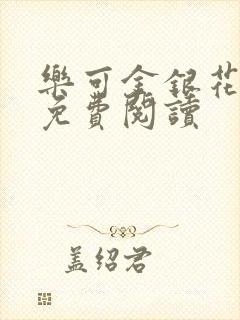 樂可金銀花
免費閱讀
蓋紹君